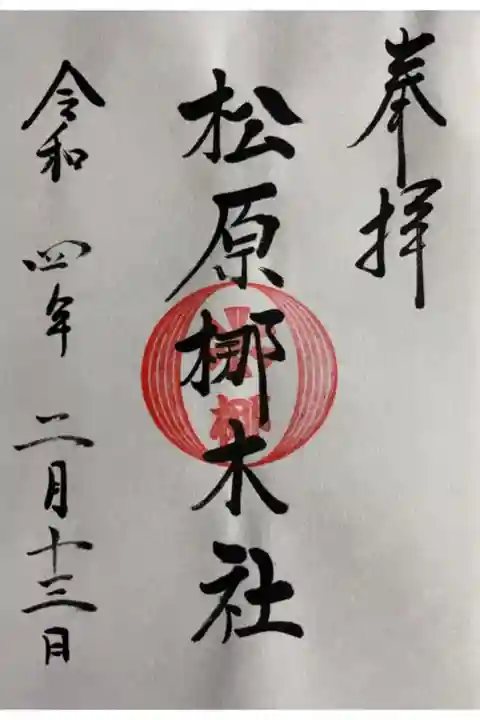 奉拝
松原梛木社
令和 四年 二月十三日